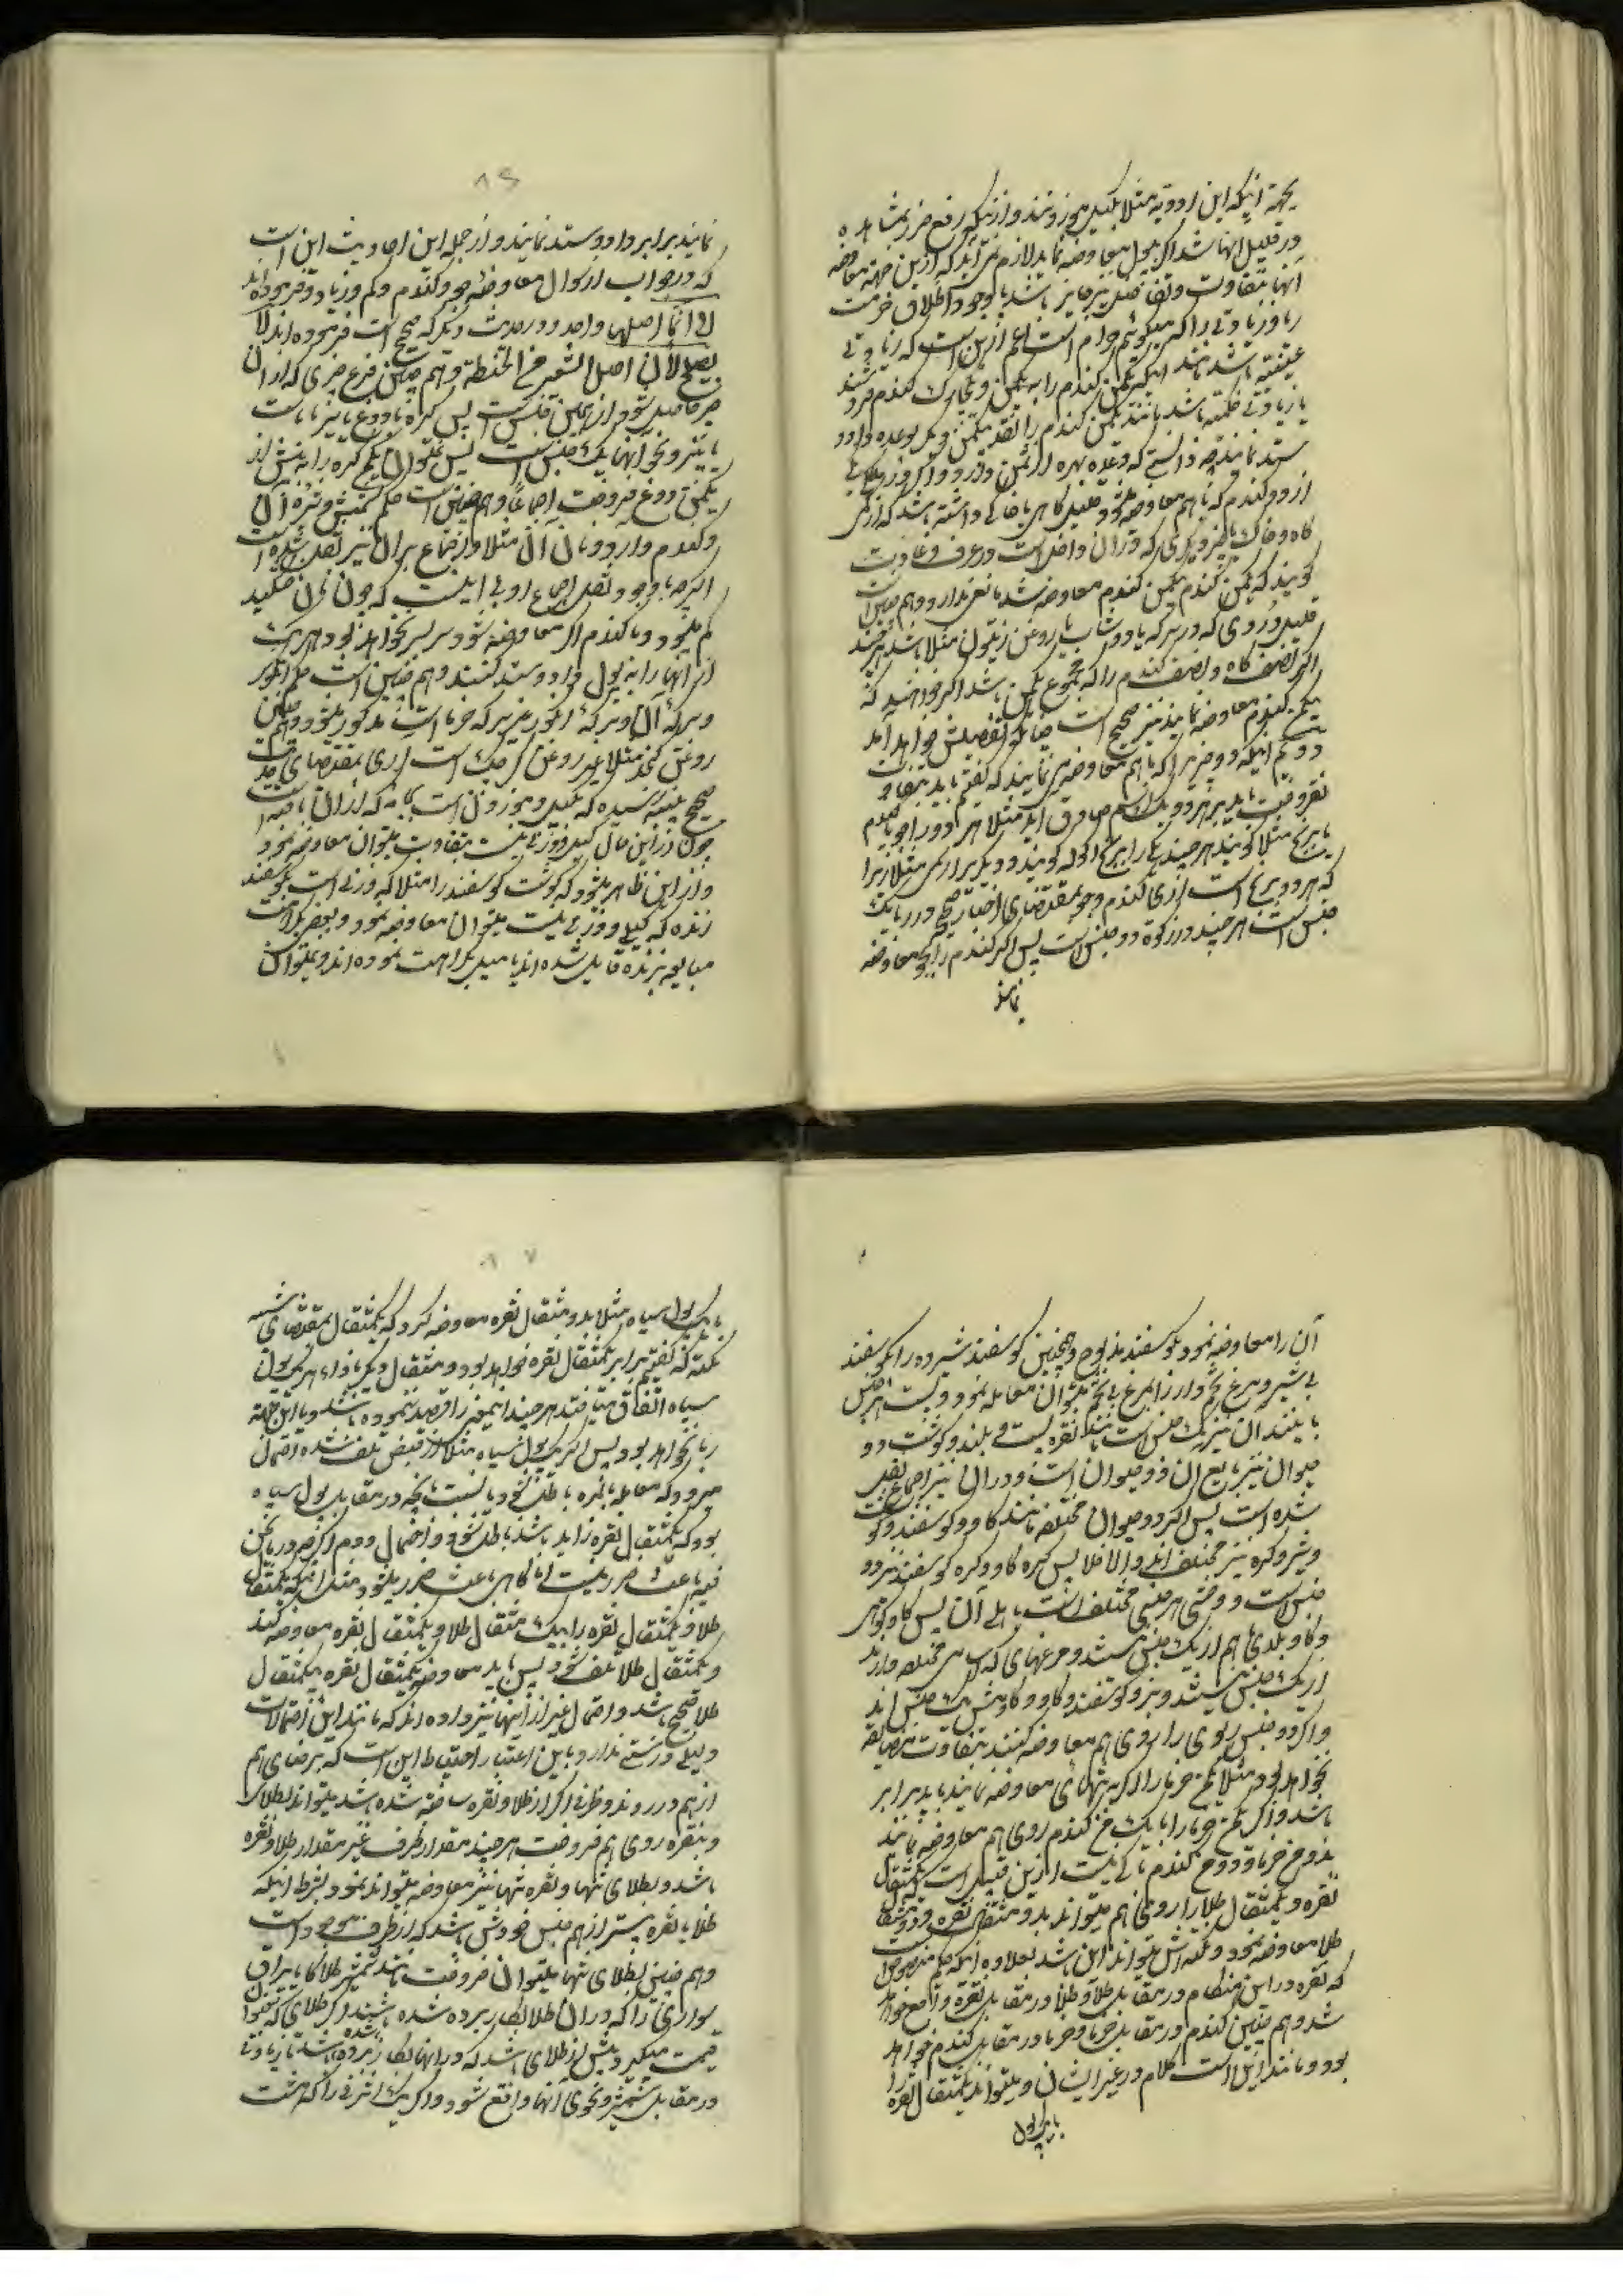 بجهة اینکه این ادویه مثلا مکیل و موزونند و از اینکه رفع ضرر بمشاهده
در قلیل آنها شد اگر بپول معاوضه نماید لازم نمی آید که ازین جهة معاوضه
آنها بتفاوت و تفاضل نیز جایز باشد با وجود اطلاق حرمت
ربا و زیادتی را که میگوئیم حرام است اعم ازین است که زیادتی
عینیه باشد مانند اینکه یکمن گندم را به یکمن و چارک گندم فروشند
یا زیادتی حکمیه باشد مانند یکمن گندم را نقد بیکمن دیگر بوعده داد و
ستد نمایند چه دانستی که وعده بهره از ثمن دارد و اگر در یکی
از دو گندم که با هم معاوضه میشود قلیل کاهی یا خاکی داشته باشد که از
کاه و خاک یا غیر دیگری که در آن داخل است در عرف و عادت
گویند که یکمن گندم بیکمن گندم معاوضه شد مانعی ندارد و هم چنین است
قلیل دُردی که در سرکه یا دوشاب یا روغن زیتون مثلا باشد هر چند
اگر نصف کاه و نصف گندم را که مجموع یکمن باشد اگر خواهند که
بیکمن گندم معاوضه نمایند نیز صحیح است چنانکه تفصیلش خواهد آمد
دوم اینکه دو چیز را که با هم معاوضه می نمایند که گفتیم باید بتفاوت
نفروخت باید بر هر دو یک اسم صادق آید مثلا هر دو را جو یا گندم
یا برنج مثلا گویند هر چند یکی را برنج آکوله گویند و دیگری را رسمی مثلا زیرا
که هر دو برنج است آری گندم و جو بمقتضای اخبار صحیح در ربا یک
جنس است هر چند در زکوة دو جنس است پس اگر گندم را بجو معاوضه
نمایند
نمایند برابر داد و ستد نمایند و از جمله این احادیث این است
که در جواب از سوال معاوضه جو و گندم و کم و زیاد و فرموده اند
لا انما اصلهما واحد و در حدیث دیگر که صحیح است فرموده اند لا
یصلح لأن اصل الشعیر من الحنطة و هم چنین فرع چیزی که از آن
چیز حاصل شود از همین جنس است پس کره با دوغ با پنیر با ماست
با پنیر و نحو اینها یک جنس است پس نمیتوان یکمن کره را به بیش از
یکمن دوغ فروخت اجماعاً و هم چنین است حکم کشمش و شیره آن
و گندم و آرد و نان آن مثلا و اجماع بر آن نیز نقل شده است
اگر چه با وجود نقل اجماع اولی اینست که چون نان خشکید
کم میشود و با گندم اگر معاوضه شود سر بسر نخواهد بود هر یک
از آنها را به پول داد و ستد کنند و هم چنین است حکم انگور
و سرکه آن و سرکه انگور غیر سرکه خرما است مذکور میشود و هم چنین
روغن کنجد مثلا غیر روغن کرچک است آری بمقتضای حدیث
صحیح بنیه رسیده که مکیل و موزون است بجامه که از آن بافته است
چون در این حال کیل و وزنی نیست بتفاوت میتوان معاوضه نمود
و از این ظاهر میشود که گوشت گوسفند را مثلا که وزنی است بگوسفند
زنده که کیلی و وزنی نیست میتوان معاوضه نمود و بعضی بکراهت
مبایعه بزنده قایل شده اند یا میل بکراهت نموده اند و میتوان
آن را معاوضه نمود بگوسفند مذبوح و همچنین گوسفند شیرده را بگوسفند
بی شیر و مرغ تخم دار را بمرغ بی تخم میتوان معامله نمود و پست هر جنس
با بلند آن نیز یک جنس است مانند نقره پست و بلند و گوشت دو
حیوان نیز تابع آن دو حیوان است و در آن نیز اجماع نقل
شده است پس اگر دو حیوان مختلف مانند گاو و گوسفند گوشت
و شیر و کره نیز مختلف اند و الا فلا پس کره گاو و کره گوسفند نیز دو
جنس است و وحشی هر جنسی مختلف است با اهلی آن پس گاو کوهی
و گاو بلدی با هم از یک جنس نیستند و مرغهای که اسامی مختلف دارند
از یک جنس نیستند و بز و گوسفند و گاو و گاومیش یک جنس اند
و اگر دو جنس ربوی را بروی هم معاوضه کنند بتفاوت مضایقه
نخواهد بود مثلا یکمن خرما را اگر به تنهائی معاوضه نمایند باید برابر
باشد و اگر یکمن خرما را با یک من گندم روی هم معاوضه نمایند
بدو من خرما و دو من گندم باکی نیست ازین قبیل است که یکمثقال
نقره و یکمثقال طلا را روی هم میتواند بدو مثقال نقره و دو مثقال
طلا معاوضه نمود و نکته اش میتواند این باشد بعلاوه اینکه حکم منصوص است
که نقره در این هنگام در مقابل طلا و طلا در مقابل نقره واقع خواهد
شد و هم چنین گندم در مقابل خرما و خرما در مقابل گندم خواهد
بود و مانند این است کلام در غیر ایشان و میتواند یکمثقال نقره را
با یک پول
با یک پول سیاه مثلا بدو مثقال نقره معاوضه کرد که یکمثقال بمقتضای شبیه
نکته که گفتیم برابر یکمثقال نقره خواهد بود و مثقال دیگر بازاء هر یک پول
سیاه اتفاق میافتد هر چند اینمعنی را قصد ننموده باشند و باین جهة
ربا نخواهد بود پس اگر یک پول سیاه مثلا قبل از قبض تلف شده احتمال
میرود که معامله بالمره باطل شود یا نسبت بآنچه در مقابل پول سیاه
بود که یکمثقال نقره زاید باشد باطل شود و احتمال دوم اگر چه در مانحن
فیه باعث ضرر نیست اما گاهی باعث ضرر میشود مثل اینکه یکمثقال
طلا و یکمثقال نقره را بیک مثقال طلا و یکمثقال نقره معاوضه کنند
و یکمثقال طلا تلف شود پس باید معاوضه یکمثقال نقره بیکمثقال
طلا صحیح باشد و احتمال غیر از اینها نیز داده اند که مانند این احتمالات
دلیل درستی ندارد و باین اعتبار احتیاط این است که برضای هم
از هم در روند و ظرفی اگر از طلا و نقره ساخته شده باشد میتواند بطلا
و بنقره روی هم فروخت هر چند مقدار ظرف غیر مقدار طلا و نقره
باشد و بطلای تنها و نقره تنها نیز معاوضه میتواند نمود بشرط اینکه
طلا یا نقره بیشتر از هم جنس خودش باشد که در ظرف موجود است
و هم چنین بطلای تنها میتوان فروخت مانند شمشیر طلا کار یا یراق
سواری را که در آن طلا بکار برده شده باشد اگر طلای که بعنوان
قیمت میگیرد بیش از طلای باشد که در آنها بکار برده شده باشد تا زیادتی
در مقابل شمشیر و نحوی آنها واقع شود و اگر یک اشرفی را که هشت